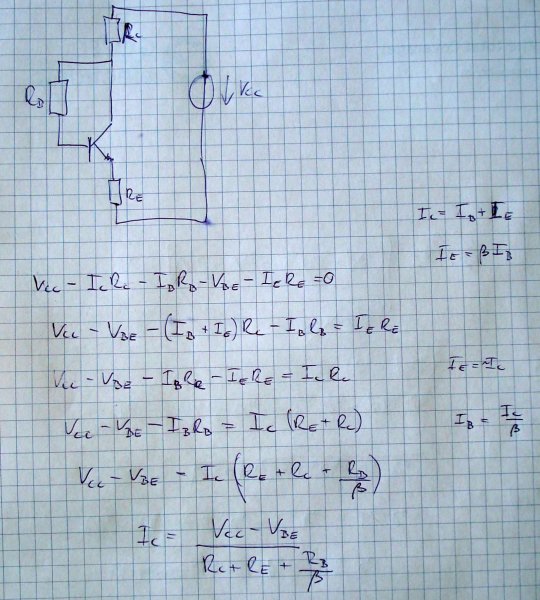 R_C
R_B
V_CC
R_E
I_C = I_B + I_E
I_E = βI_B
V_CC - I_C R_C - I_B R_B - V_BE - I_E R_E = 0
V_CC - V_BE - (I_B + I_E) R_C - I_B R_B = I_E R_E
V_CC - V_BE - I_B R_B - I_E R_E = I_C R_C
I_E = ~I_C
V_CC - V_BE - I_B R_B = I_C (R_E + R_C)
I_B = I_C / β
V_CC - V_BE - I_C (R_E + R_C + R_B / β)
I_C = V_CC - V_BE / R_C + R_E + R_B / β